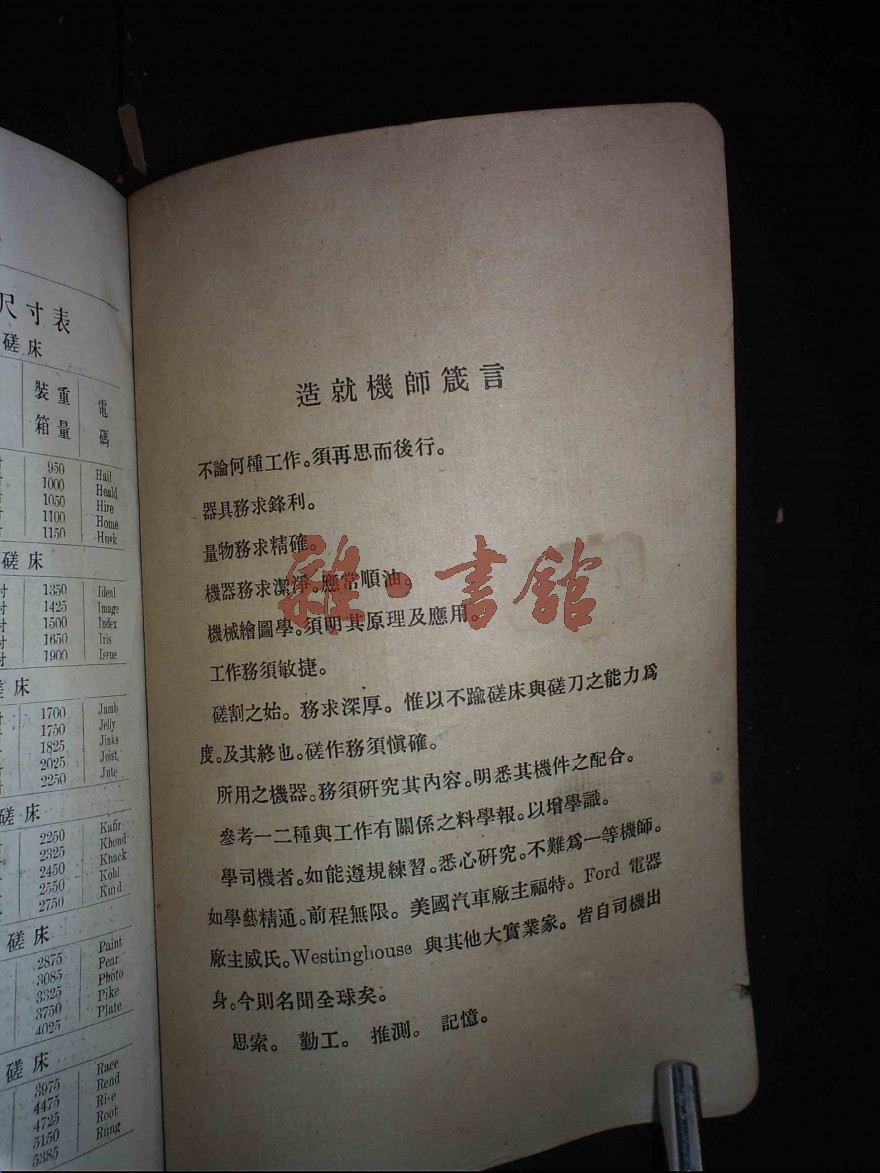 尺寸表
磋床
裝箱 重量 電碼
950 Hail
1000 Heald
1050 Hire
1100 Home
1150 Husk
磋床
1350 Ideal
1425 Image
1500 Index
1650 Iris
1900 Issue
磋床
1700 Jamb
1750 Jelly
1825 Jinks
2025 Joist
2250 Jute
磋床
2250 Kafir
2325 Khond
2450 Knack
2550 Kohl
2750 Kind
磋床
2875 Paint
3085 Pear
3325 Photo
3750 Pike
4025 Plate
磋床
3975 Race
4475 Rend
4725 Rise
5150 Root
5385 Rung
造就機師箴言
不論何種工作。須再思而後行。
器具務求鋒利。
量物務求精確。
機器務求潔淨。應常順油。
機械繪圖學。須明其原理及應用。
工作務須敏捷。
磋割之始。務求深厚。惟以不踰磋床與磋刀之能力爲
度。及其終也。磋作務須愼確。
所用之機器。務須硏究其內容。明悉其機件之配合。
參考一二種與工作有關係之料學報。以增學識。
學司機者。如能遵規練習。悉心硏究。不難爲一等機師。
如學藝精通。前程無限。美國汽車廠主福特。Ford 電器
廠主威氏。Westinghouse 與其他大實業家。皆自司機出
身。今則名聞全球矣。
思索。 勤工。 推測。 記憶。
雜·書館